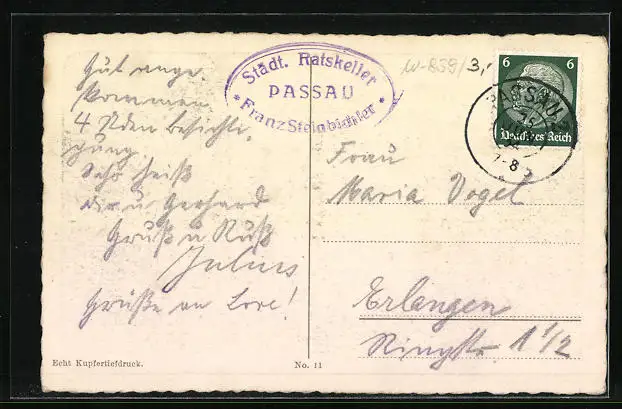 Gut ange-
kommen
4 Stden besichti-
gung
Sehr heiß
Dir u Gerhard
Gruß u Kuß
Julius
Grüße an Lore!
Städt. Ratskeller
PASSAU
* Franz Steinbichler *
W-839/3,
6 6
Deutsches Reich
PASSAU
7-8
Frau
Maria Vogel
Erlangen
Ringstr. 1 1/2
Echt Kupfertiefdruck.
No. 11